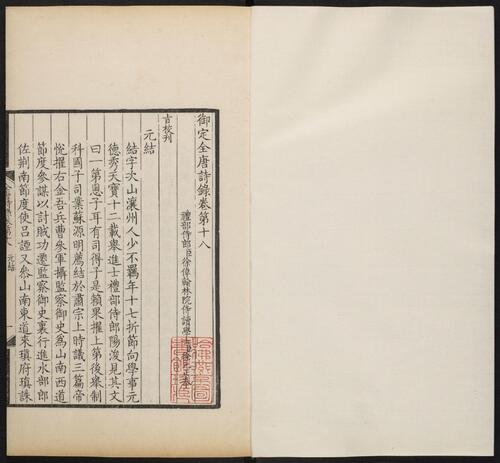 御定全唐詩錄卷第十八
禮部侍郎臣徐倬翰林院侍讀學士臣徐元正奉
旨校刊
元結
結字次山瀼州人少不羈年十七折節向學事元
德秀天寶十二載舉進士禮部侍郎陽浚見其文
曰一第慁子耳有司得子是賴果擢上第後舉制
科國子司業蘇源明薦結於肅宗上時議三篇帝
悅擢右金吾兵曹參軍攝監察御史為山南西道
節度參謀以討賊功遷監察御史裏行進水部郎
佐荆南節度使呂諲又參山南東道來瑱府瑱誅
元結
一